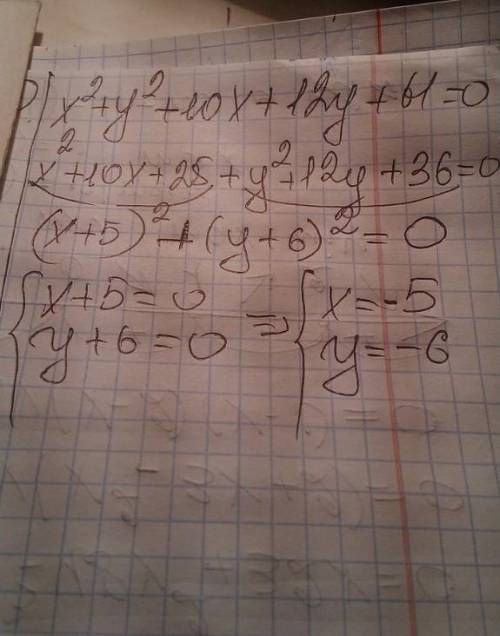 x²+y²+10x+12y+61=0
x²+10x+25+y²+12y+36=0
(x+5)²+(y+6)²=0
{x+5=0 ⇒ {x=-5
y+6=0 y=-6